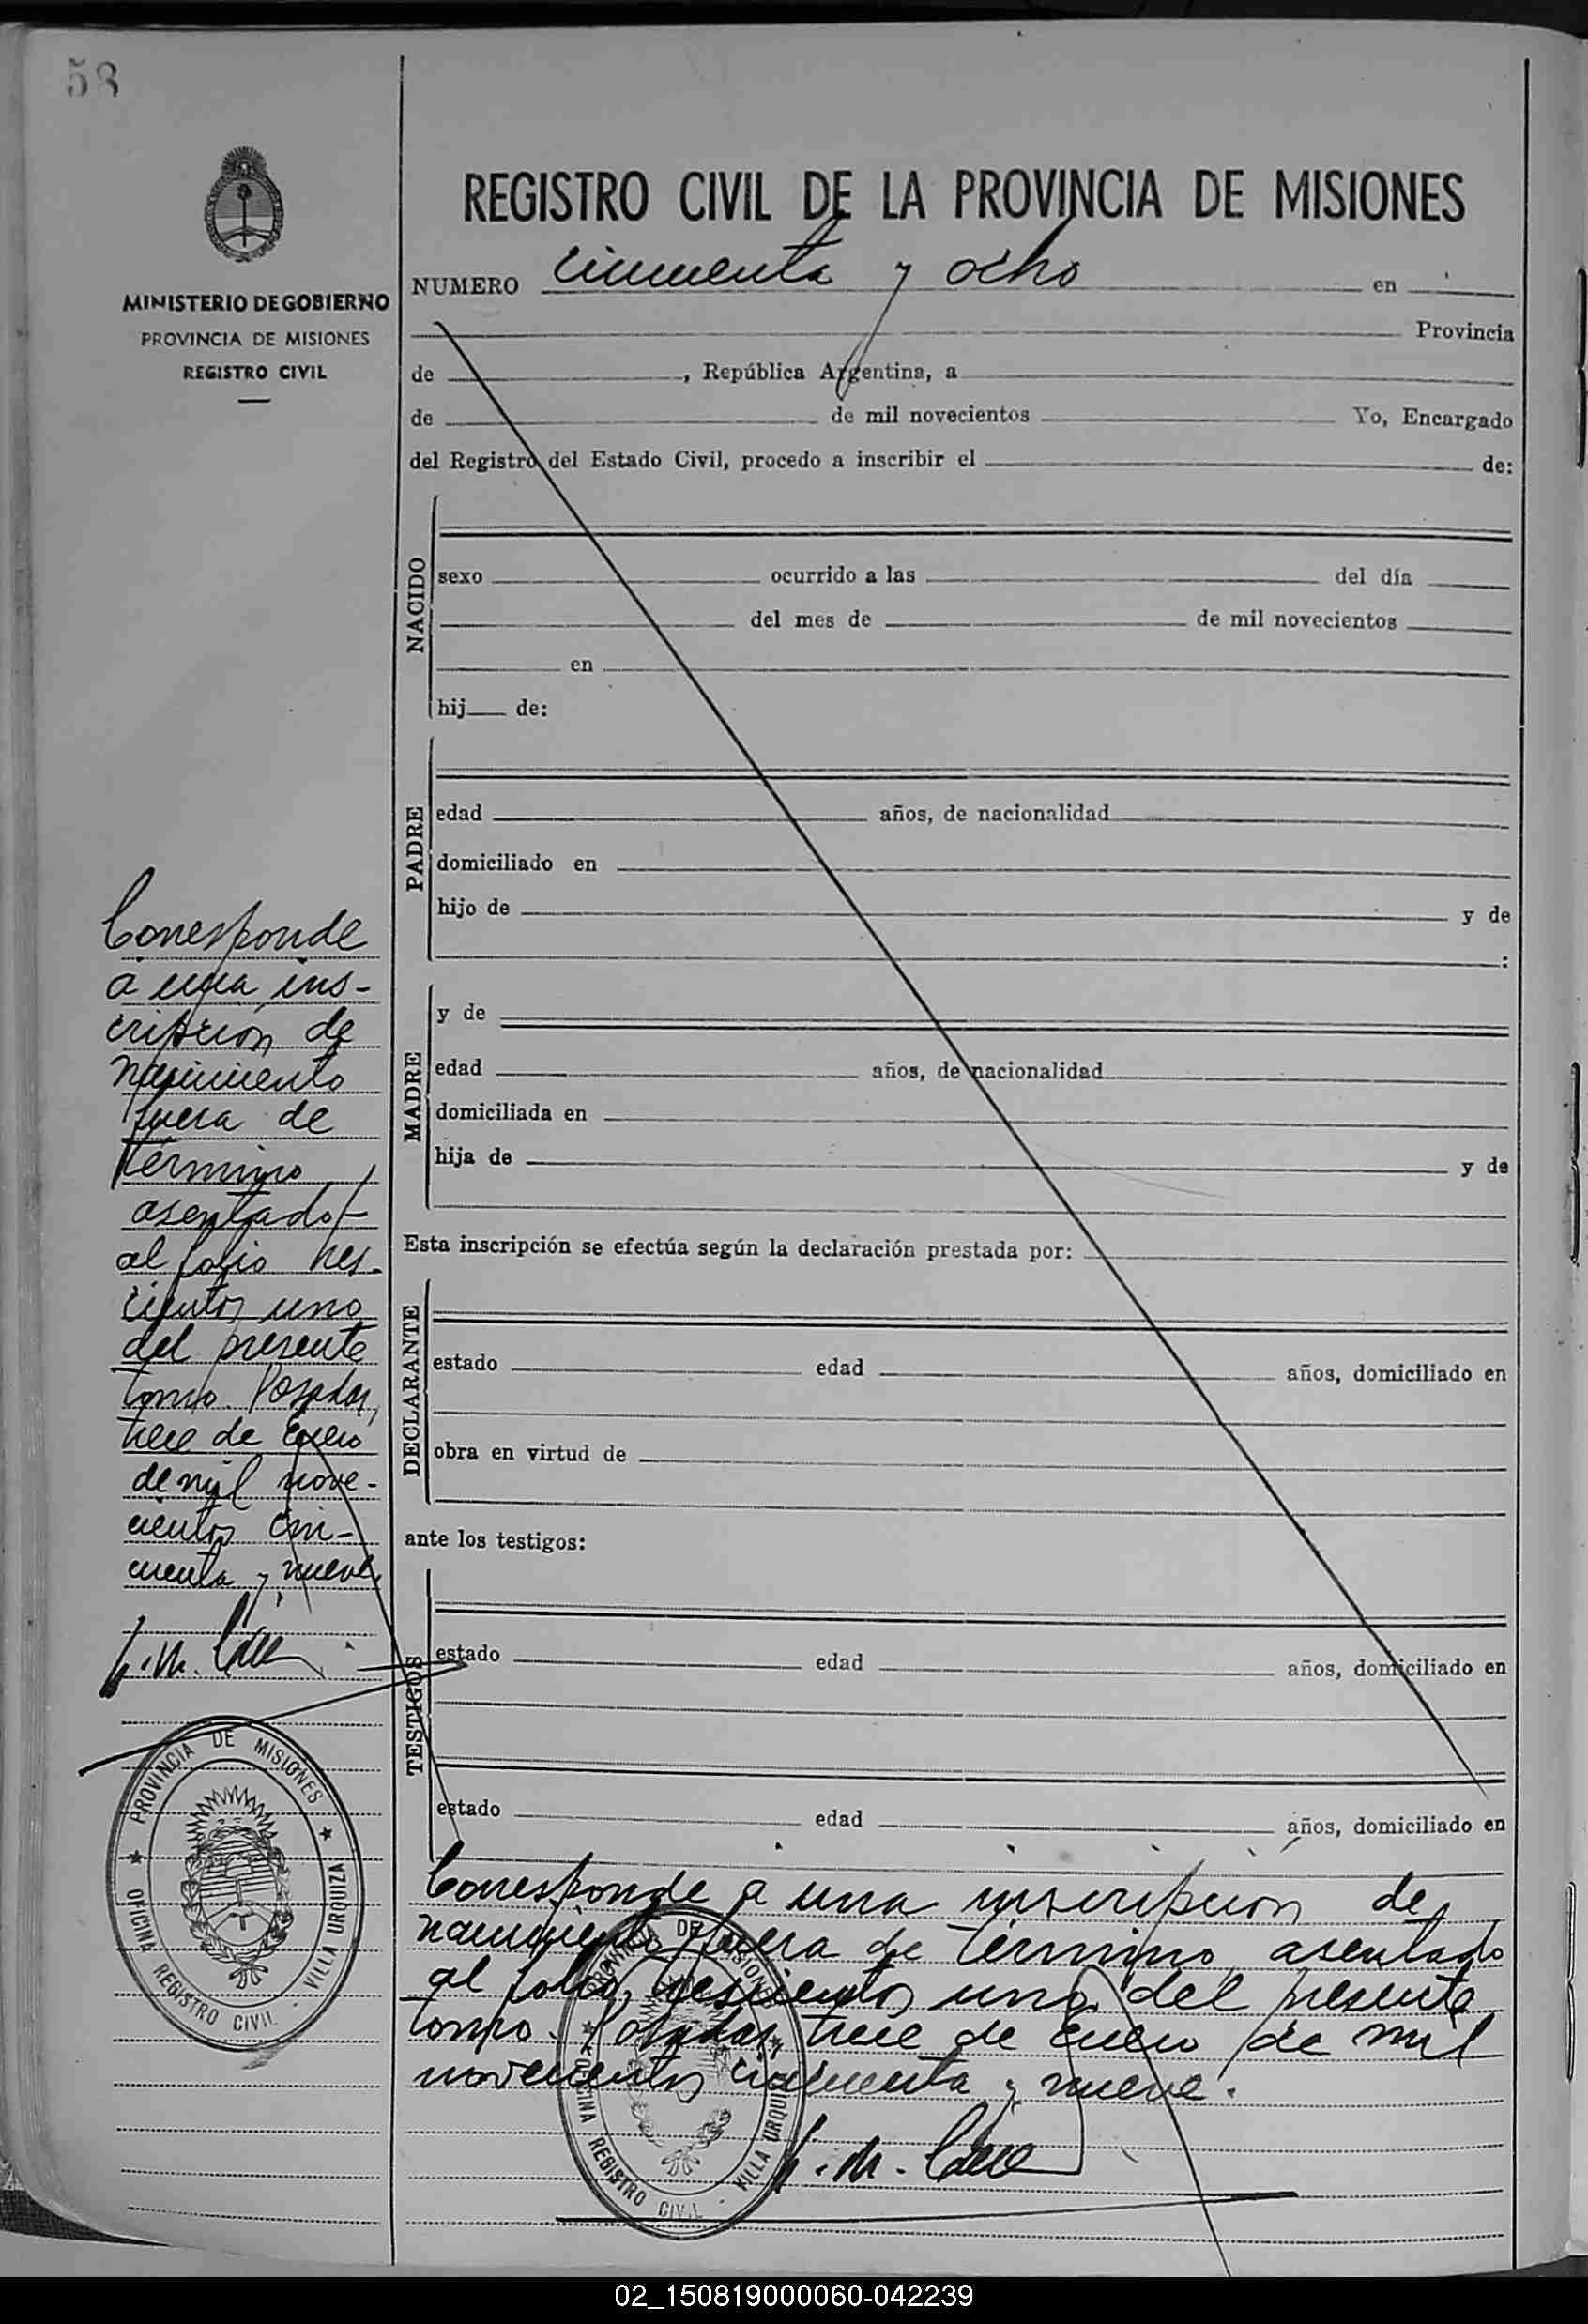 58
MINISTERIO DE GOBIERNO
PROVINCIA DE MISIONES
REGISTRO CIVIL
REGISTRO CIVIL DE LA PROVINCIA DE MISIONES
NUMERO cincuenta y ocho en
Provincia
de , República Argentina, a
de de mil novecientos Yo, Encargado
del Registro del Estado Civil, procedo a inscribir el de:
NACIDO
sexo ocurrido a las del día
del mes de de mil novecientos
en
hij de:
PADRE
edad años, de nacionalidad
domiciliado en
hijo de y de
:
MADRE
y de
edad años, de nacionalidad
domiciliada en
hija de y de
Esta inscripción se efectúa según la declaración prestada por:
DECLARANTE
estado edad años, domiciliado en
obra en virtud de
ante los testigos:
TESTIGOS
estado edad años, domiciliado en
estado edad años, domiciliado en
Corresponde a una inscripción de
nacimiento fuera de término asentado
al folio trescientos uno del presente
tomo. Posadas, trece de Enero de mil
novecientos cincuenta y nueve.
PROVINCIA DE MISIONES
OFICINA REGISTRO CIVIL - VILLA URQUIZA
Corresponde
a una ins-
cripción de
nacimiento
fuera de
término
asentado
al folio tres-
cientos uno
del presente
tomo. Posadas,
trece de Enero
de mil nove-
cientos cin-
cuenta y nueve
PROVINCIA DE MISIONES
OFICINA REGISTRO CIVIL - VILLA URQUIZA
02_150819000060-042239